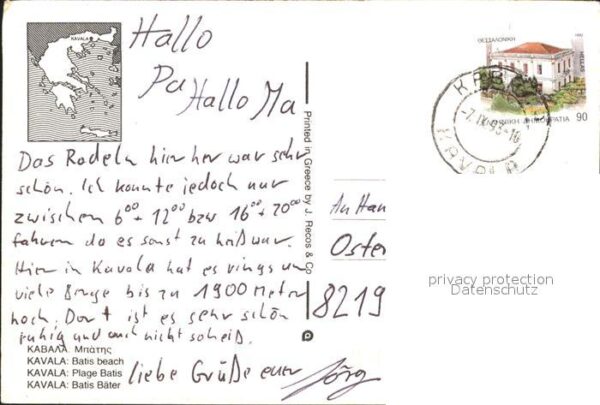 KAVALA
Hallo
Pa Hallo Ma
Das Radeln hier her war sehr
schön. Ich konnte jedoch nur
zwischen 6⁰⁰ + 12⁰⁰ bzw 16⁰⁰ + 20⁰⁰
fahren da es sonst zu heiß war.
Hier in Kavala hat es rings um
viele Berge bis zu 1900 Meter
hoch. Dort ist es sehr schön
ruhig und auch nicht so heiß.
liebe Grüße euer Jörg
ΚΑΒΑΛΑ: Μπάτης
KAVALA: Batis beach
KAVALA: Plage Batis
KAVALA: Batis Bäter
Printed in Greece by J. Recos & Co
ΘΕΣΣΑΛΟΝΙΚΗ
HELLAS
ΕΛΛΗΝΙΚΗ ΔΗΜΟΚΡΑΤΙΑ
90
-7.IX.93-10
KAVALA
An Han
Oster
8219
privacy protection
Datenschutz